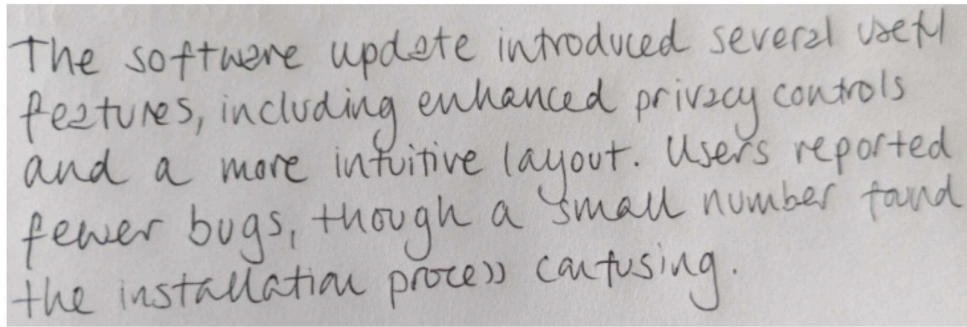 The software update introduced several useful
features, including enhanced privacy controls
and a more intuitive layout. Users reported
fewer bugs, though a small number found
the installation process confusing.